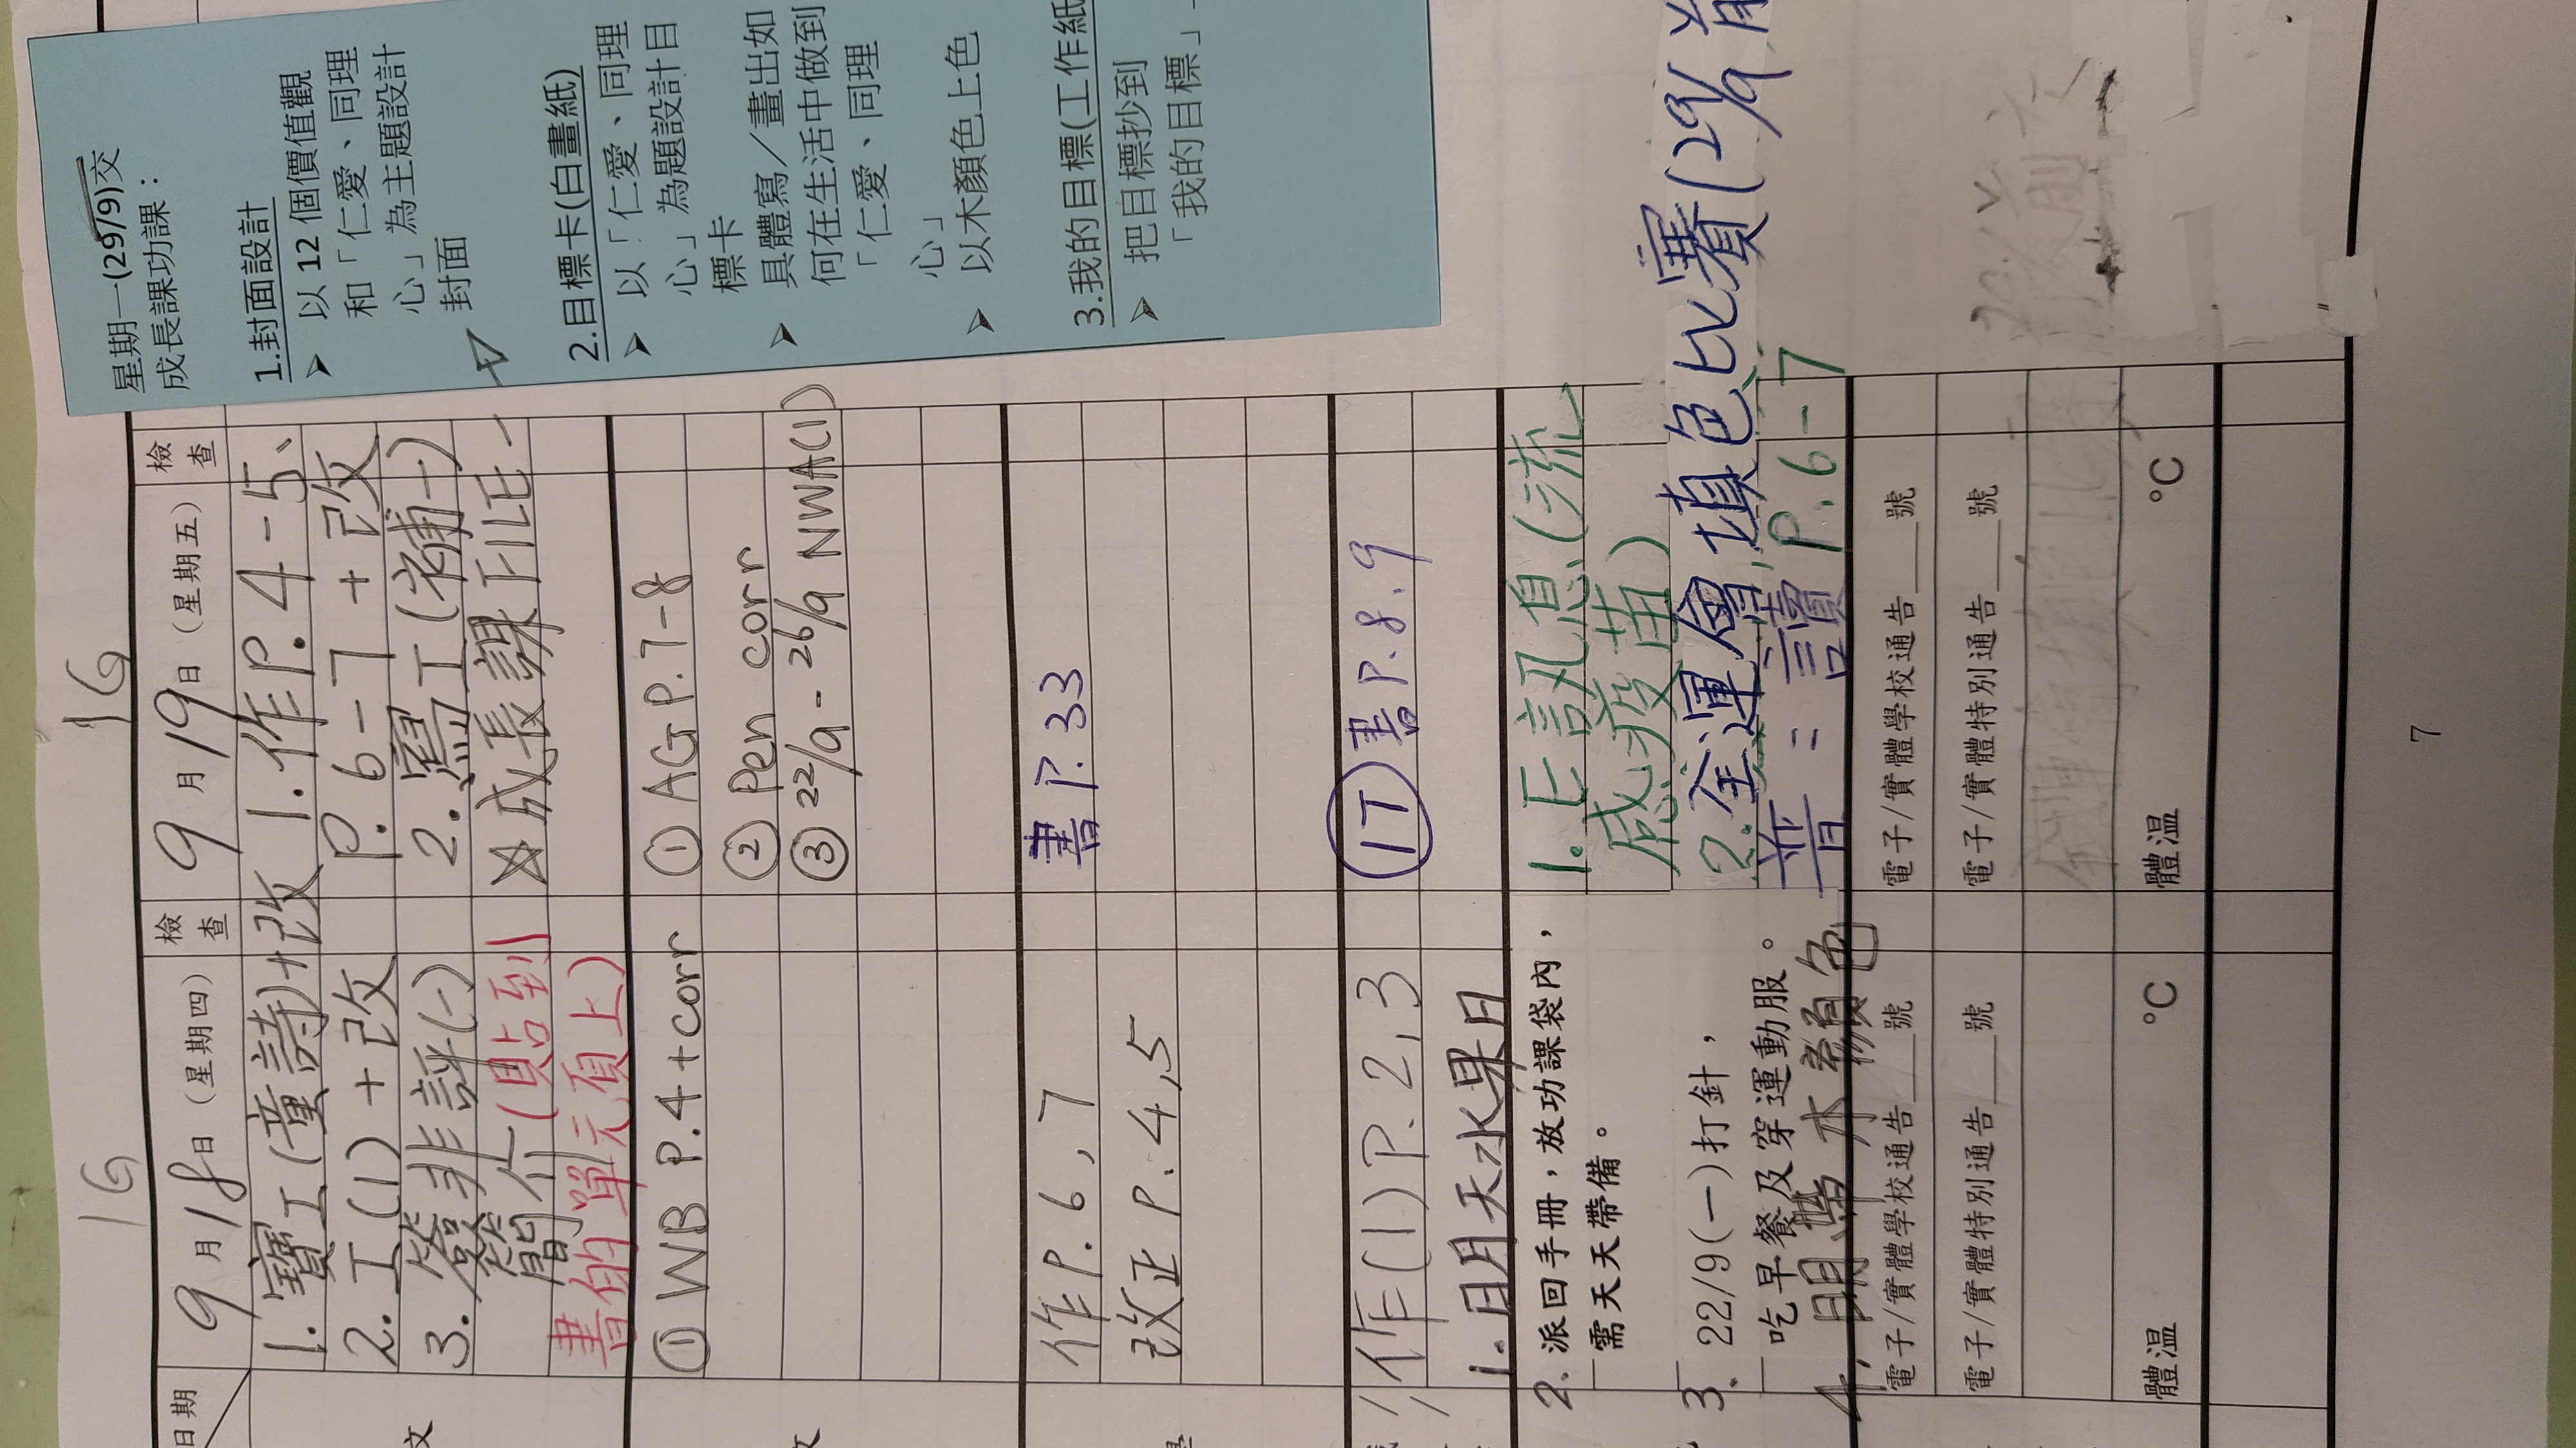 星期一(29/9)交
成長課功課：
1.封面設計
➤ 以 12 個價值觀
和「仁愛、同理
心」為主題設計
封面
2.目標卡(白畫紙)
➤ 以「仁愛、同理
心」為題設計目
標卡
➤ 具體寫／畫出如
何在生活中做到
「仁愛、同理
心」
➤ 以木顏色上色
3.我的目標(工作紙
➤ 把目標抄到
「我的目標」
日期
16
9月18日（星期四）
檢查
1.寶工(童詩)+改
2.工(1)+改
3.簽非評(一)
簡介(貼到
書的單元頁上)
① WB P.4+corr
作P.6,7
改正P.4,5
作(1)P.2,3
1.明天水果日
2.派回手冊，放功課袋內，
需天天帶備。
3.22/9(一)打針，
吃早餐及穿運動服。
4.明帶木顏色
電子/實體學校通告___號
電子/實體特別通告___號
體溫 °C
16
9月19日（星期五）
檢查
1.作P.4-5、
P.6-7+改
2.寫工(補一)
✩成長課FILE
① AGP.7-8
② Pen corr
③ 22/9-26/9 NWA(1)
書P.33
IT 書P.8.9
1.E訊息(流
感疫苗)
2.全運會填色比賽(29/9前
普=讀P.6-7
電子/實體學校通告___號
電子/實體特別通告___號
體溫 °C
7